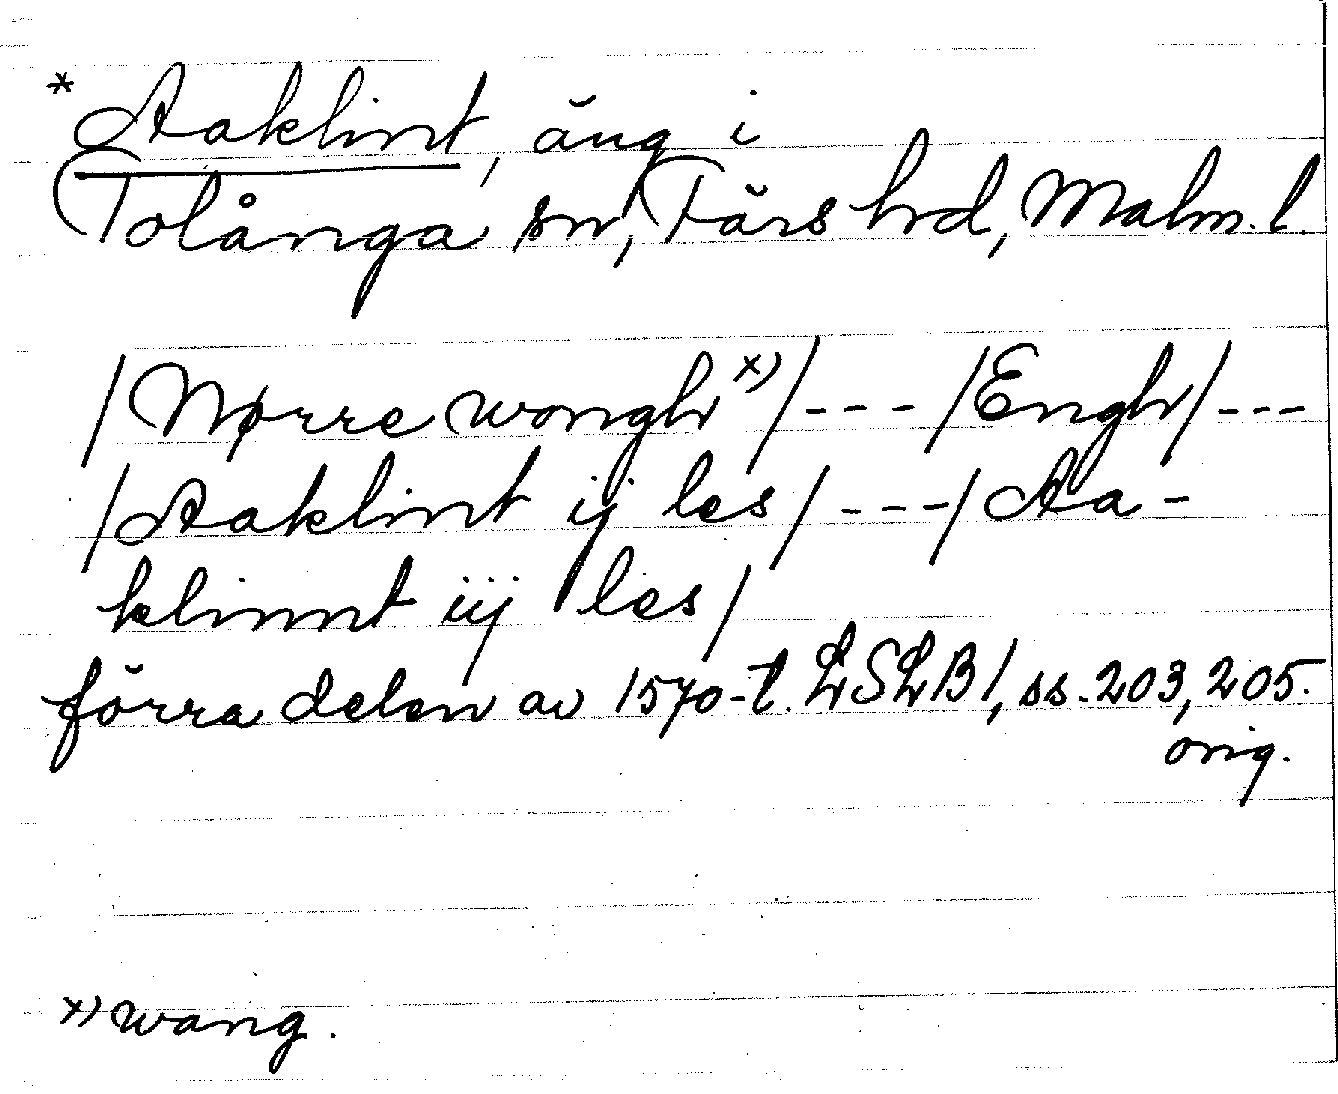 * Aaklint, äng i
Tolånga sn, Färs hrd, Malm. l.
/Nørre wongh x)/ --- /Engh/ ---
/Aaklint ij les/ --- / Aa-
klinnt iij les/
förra delen av 1570-t. LSLB1, ss. 203, 205.
orig.
x) wang.